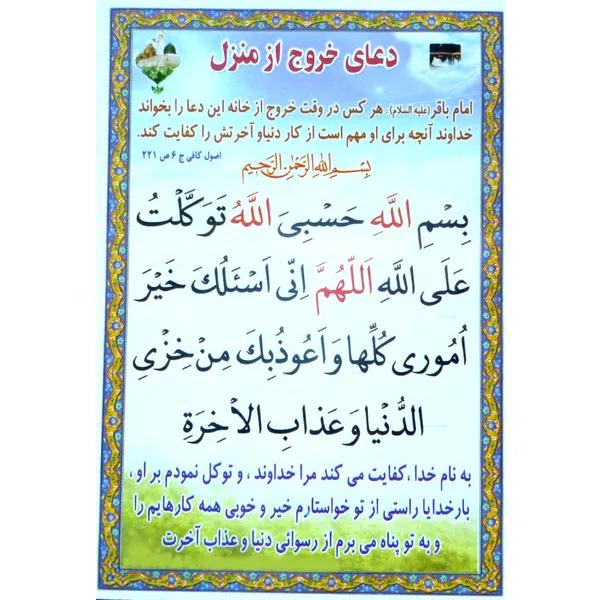 دعای خروج از منزل
امام باقر (علیه السلام): هر کس در وقت خروج از خانه این دعا را بخواند
خداوند آنچه برای او مهم است از کار دنیا و آخرتش را کفایت کند.
اصول کافی ج ۶ ص ۲۲۱
بِسْمِ اللهِ الرَّحْمٰنِ الرَّحِیمِ
بِسْمِ اللَّهِ حَسْبِیَ اللَّهُ تَوَکَّلْتُ
عَلَی اللَّهِ اَللّهُمَّ اِنّی اَسْئَلُکَ خَیْرَ
اُمُوری کُلِّها وَ اَعُوذُ بِکَ مِنْ خِزْیِ
الدُّنْیا وَ عَذابِ الْاخِرَةِ
به نام خدا ، کفایت می کند مرا خداوند ، و توکل نمودم بر او ،
بارخدایا راستی از تو خواستارم خیر و خوبی همه کارهایم را
و به تو پناه می برم از رسوائی دنیا و عذاب آخرت